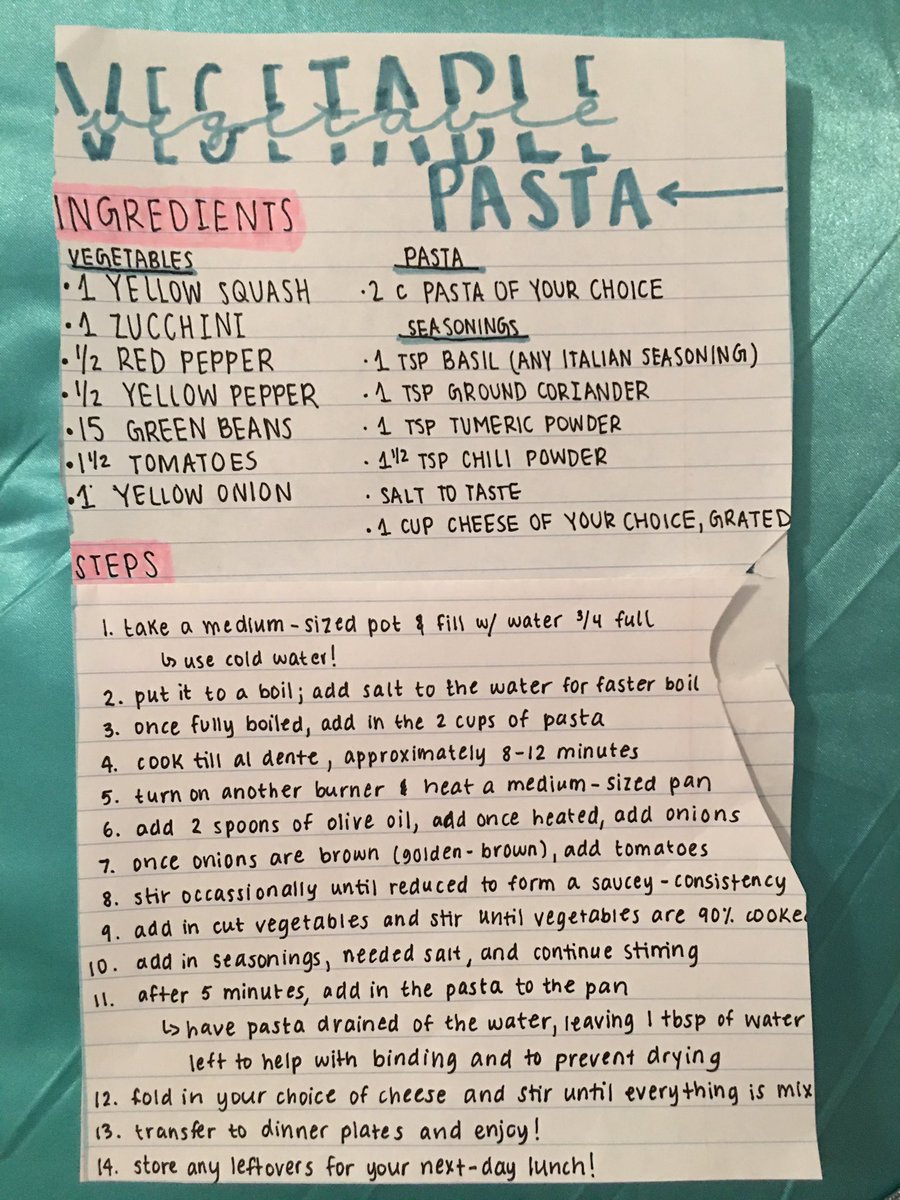 VEGETABLE
vegetable
PASTA ←
INGREDIENTS
VEGETABLES
• 1 YELLOW SQUASH
• 1 ZUCCHINI
• 1/2 RED PEPPER
• 1/2 YELLOW PEPPER
• 15 GREEN BEANS
• 1 1/2 TOMATOES
• 1 YELLOW ONION
PASTA
• 2 C PASTA OF YOUR CHOICE
SEASONINGS
• 1 TSP BASIL (ANY ITALIAN SEASONING)
• 1 TSP GROUND CORIANDER
• 1 TSP TUMERIC POWDER
• 1 1/2 TSP CHILI POWDER
• SALT TO TASTE
• 1 CUP CHEESE OF YOUR CHOICE, GRATED
STEPS
1. take a medium-sized pot & fill w/ water 3/4 full
↳ use cold water!
2. put it to a boil; add salt to the water for faster boil
3. once fully boiled, add in the 2 cups of pasta
4. cook till al dente, approximately 8-12 minutes
5. turn on another burner & heat a medium-sized pan
6. add 2 spoons of olive oil, add once heated, add onions
7. once onions are brown (golden-brown), add tomatoes
8. stir occassionally until reduced to form a saucey-consistency
9. add in cut vegetables and stir until vegetables are 90% cooked
10. add in seasonings, needed salt, and continue stirring
11. after 5 minutes, add in the pasta to the pan
↳ have pasta drained of the water, leaving 1 tbsp of water
left to help with binding and to prevent drying
12. fold in your choice of cheese and stir until everything is mix
13. transfer to dinner plates and enjoy!
14. store any leftovers for your next-day lunch!